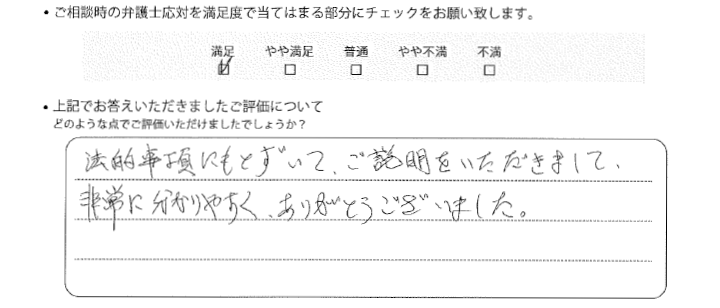 ・ご相談時の弁護士応対を満足度で当てはまる部分にチェックをお願い致します。
満足 やや満足 普通 やや不満 不満
☑ □ □ □ □
・上記でお答えいただきましたご評価について
どのような点でご評価いただけましたでしょうか？
法的事項にもとずいて、ご説明をいただきまして、
非常に分かりやすく、ありがとうございました。